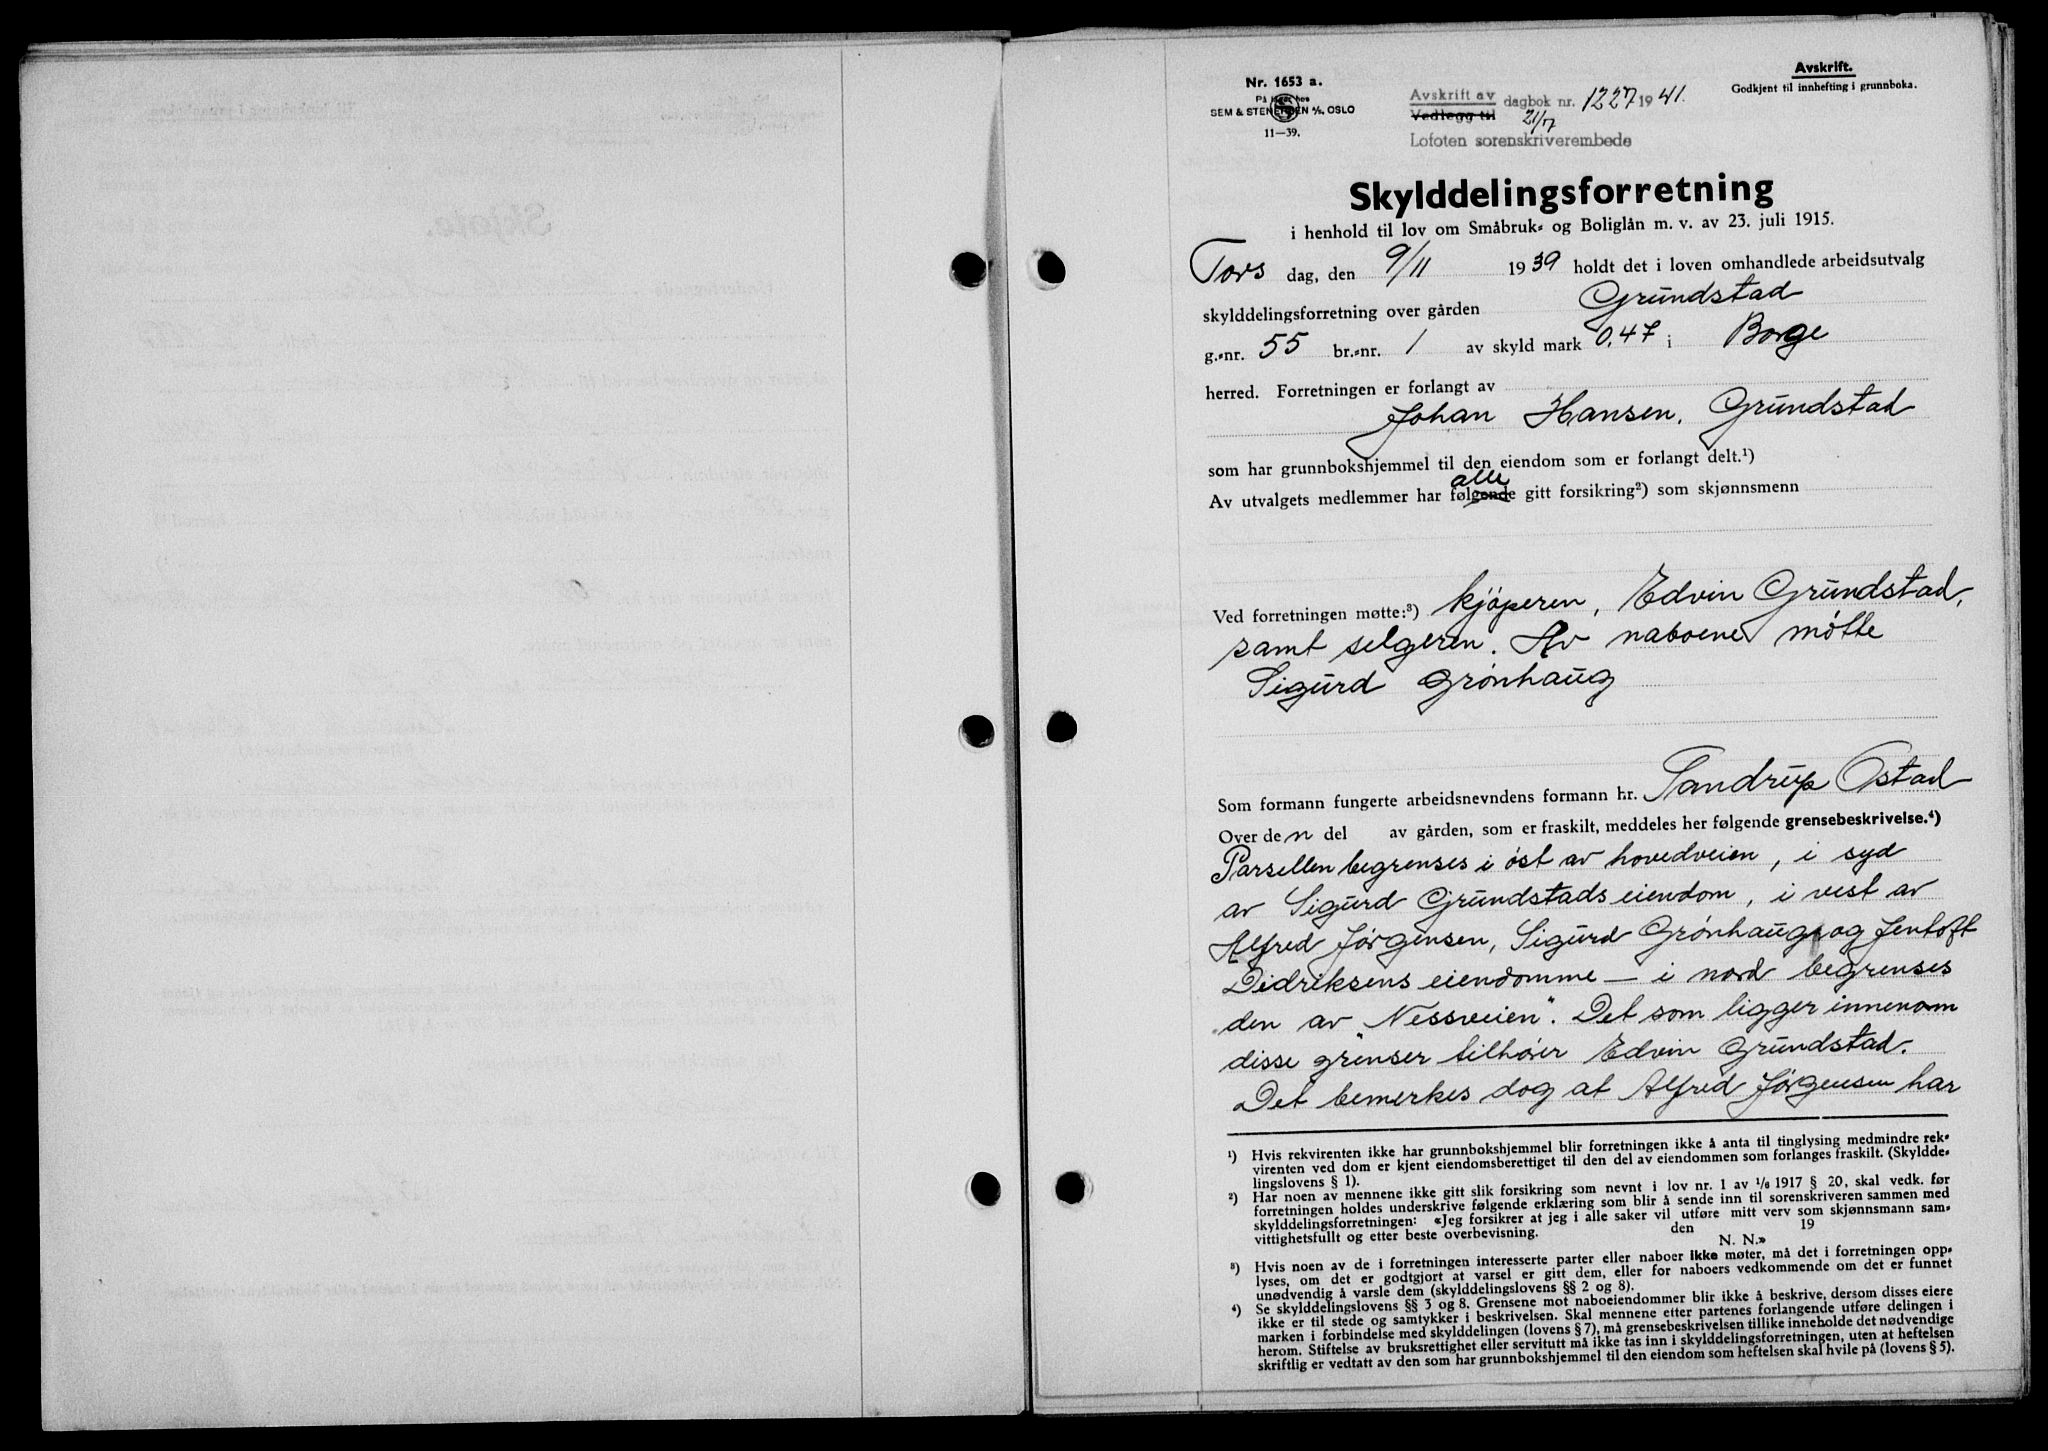 Nr. 1653 a.
På lager hos
SEM & STENERSEN A/S, OSLO
11—39.
Avskrift av
Vedlegg til
dagbok nr. 1227 1941.
21/7
Lofoten sorenskriverembede
Avskrift.
Godkjent til innhefting i grunnboka.
Skylddelingsforretning
i henhold til lov om Småbruk- og Boliglån m. v. av 23. juli 1915.
Tors dag, den 9/11 1939 holdt det i loven omhandlede arbeidsutvalg
skylddelingsforretning over gården Grundstad
g.-nr. 55 br.-nr. 1 av skyld mark 0,47 i Borge
herred. Forretningen er forlangt av
Johan Hansen, Grundstad
som har grunnbokshjemmel til den eiendom som er forlangt delt.¹)
alle
Av utvalgets medlemmer har følgende gitt forsikring²) som skjønnsmenn
Ved forretningen møtte:³) kjøperen, Edvin Grundstad,
samt selgeren. Av naboene møtte
Sigurd Grønhaug
Som formann fungerte arbeidsnevndens formann hr. Sandrup Ostad
Over den del av gården, som er fraskilt, meddeles her følgende grensebeskrivelse.⁴)
Parsellen begrenses i øst av hovedveien, i syd
av Sigurd Grundstads eiendom, i vest av
Alfred Jørgensen, Sigurd Grønhaug og Jentoft
Didriksens eiendomme — i nord begrenses
den av "Nessveien". Det som ligger innenom
disse grenser tilhører Edvin Grundstad.
Det bemerkes dog at Alfred Jørgensen har
¹) Hvis rekvirenten ikke har grunnbokshjemmel blir forretningen ikke å anta til tinglysing medmindre rek-
virenten ved dom er kjent eiendomsberettiget til den del av eiendommen som forlanges fraskilt. (Skyldde-
lingslovens § 1).
²) Har noen av mennene ikke gitt slik forsikring som nevnt i lov nr. 1 av 1/6 1917 § 20, skal vedk. før
forretningen holdes underskrive følgende erklæring som blir å sende inn til sorenskriveren sammen med
skylddelingsforretningen: «Jeg forsikrer at jeg i alle saker vil utføre mitt verv som skjønnsmann sam-
vittighetsfullt og etter beste overbevisning. den 19
N. N.»
³) Hvis noen av de i forretningen interesserte parter eller naboer ikke møter, må det i forretningen opp-
lyses, om det er godtgjort at varsel er gitt dem, eller for naboers vedkommende om det er funnet
unødvendig å varsle dem (skylddelingslovens §§ 2 og 8).
⁴) Se skylddelingslovens §§ 3 og 8. Grensene mot naboeiendommer blir ikke å beskrive, dersom disses eiere
ikke er til stede og samtykker i beskrivelsen. Skal mennene etter partenes forlangende utføre delingen i
marken i forbindelse med skylddelingen (lovens § 7), må grensebeskrivelsen tillike inneholde det nødvendige
herom. Stiftelse av bruksrettighet eller servitutt må ikke tas inn i skylddelingsforretningen, uten at heftelsen
skriftlig er vedtatt av den som har grunnbokshjemmel til den eiendom som heftelsen skal hvile på (lovens § 5).